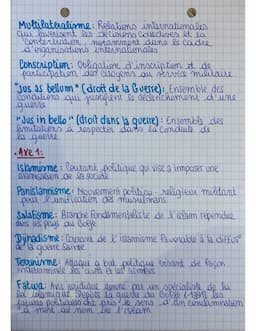 Multilatéralisme : Relations internationales
qui favorisent les décisions collectives et la
concertation, notamment dans le cadre
d'organisations internationales.
Conscription : Obligation d'inscription et de
participation des citoyens au service militaire.
"Jus as bellum" (droit de la guerre) : Ensemble des
conditions qui justifient le déclenchement d'une
guerre
"Jus in bello" (droit dans la guerre) : Ensemble des
limitations à respecter dans la conduite de
la guerre.
. Axe 1 :
Islamisme : Courant politique qui vise à imposer une
de la société
Panislamisme : Mouvement politico-religieux militant
pour l'unification des musulmans.
Salafisme : Branche fondamentaliste de l'islam répandue
dans les pays du Golfe
Djihadisme : Courant de l'islamisme favorable à la
de la guerre sainte
Terrorisme : Attaque à but politique visant de façon
indéterminée les civils et les
Fatwa : Avis juridique donné par un spécialiste de la
loi islamique. Depuis la guerre du Golfe (1991) les
fatwas ont pris le sens d'un condamnation
à mort au nom de l'islam